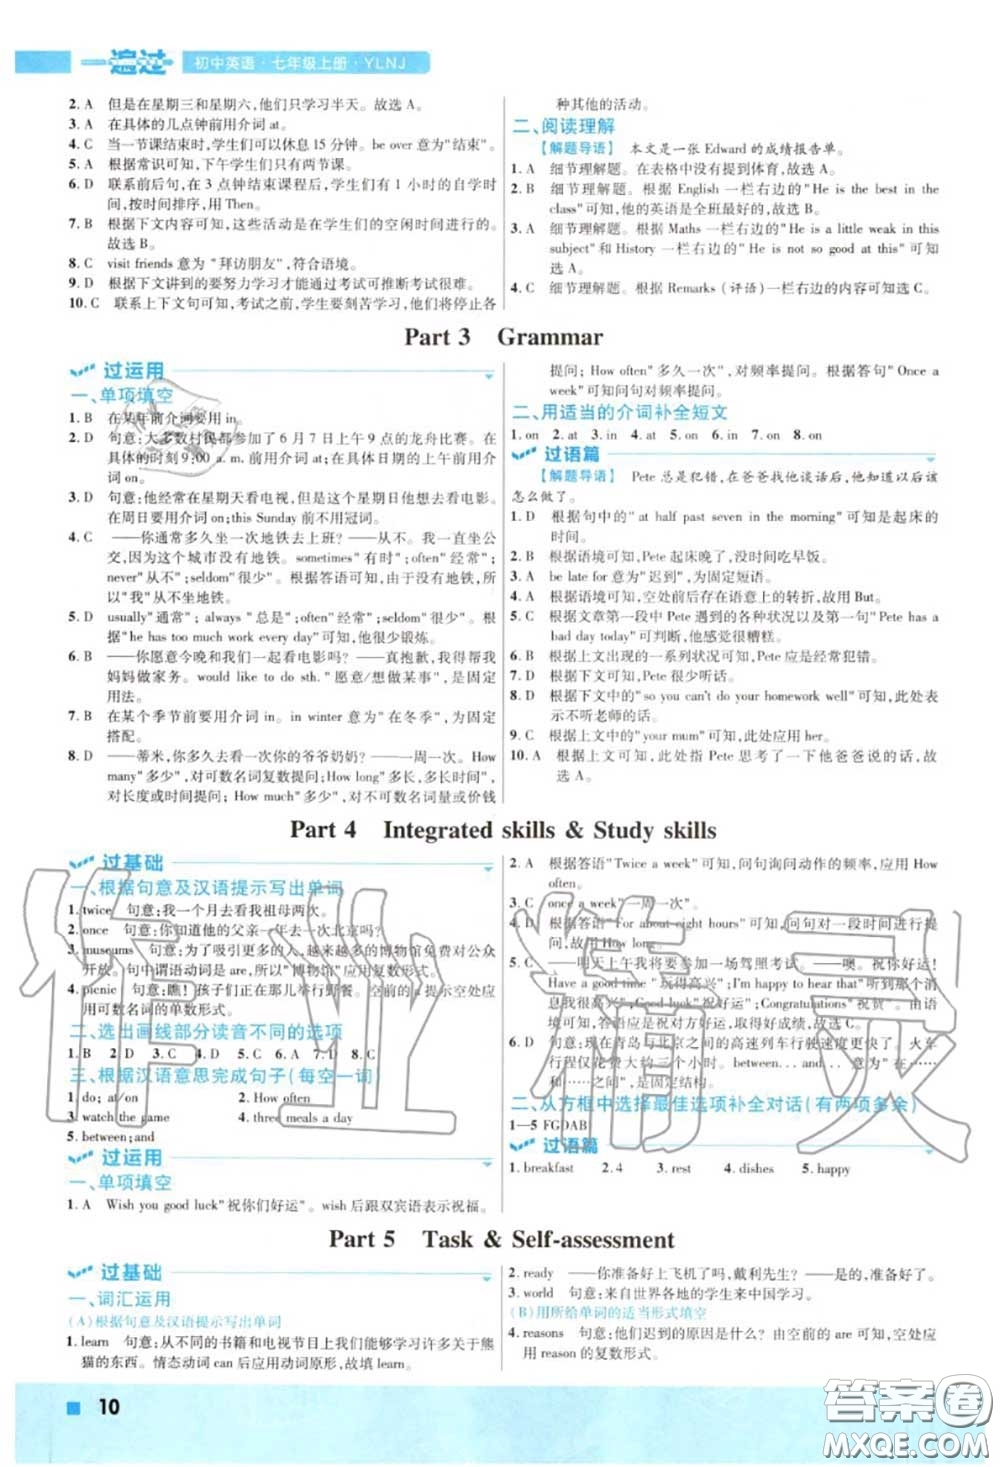 一遍过 初中英语·七年级上册·YLNJ
2. A 但是在星期三和星期六,他们只学习半天。故选 A。
3. A 在具体的几点钟前用介词 at。
4. C 当一节课结束时,学生们可以休息 15 分钟。be over 意为"结束"。
5. A 根据常识可知,下午学生们只有两节课。
6. D 联系前后句,在 3 点钟结束课程后,学生们有 1 小时的自学时
间,按时间排序,用 Then。
7. B 根据下文内容可知,这些活动是在学生们的空闲时间进行的。
故选 B。
8. C visit friends 意为 "拜访朋友",符合语境。
9. D 根据下文讲到的要努力学习才能通过考试可推断考试很难。
10. C 联系上下文句可知,考试之前,学生要刻苦学习,他们将停止各
种其他的活动。
二、阅读理解
【解题导语】 本文是一张 Edward 的成绩报告单。
1. A 细节理解题。在表格中没有提到体育,故选 A。
2. B 细节理解题。根据 English 一栏右边的"He is the best in the
class"可知,他的英语是全班最好的,故选 B。
3. A 细节理解题。根据 Maths 一栏右边的"He is a little weak in this
subject"和 History 一栏右边的"He is not so good at this"可知
选 A。
4. C 细节理解题。根据 Remarks (评语)一栏右边的内容可知选 C。
Part 3 Grammar
过运用
一、单项填空
1. B 在某年前介词要用 in。
2. D 句意:大多数村民都参加了 6 月 7 日上午 9 点的龙舟比赛。在
具体的时刻 9:00 a. m. 前用介词 at;在具体日期的上午前用介
词 on。
3. D 句意:他经常在星期天看电视,但是这个星期日他想去看电影。
在周日要用介词 on;this Sunday 前不用冠词。
4. C ——你多久坐一次地铁去上班? ——从不。我一直坐公
交,因为这个城市没有地铁。sometimes"有时";often"经常";
never"从不";seldom"很少"。根据答语可知,由于没有地铁,所
以"我"从不坐地铁。
5. D usually"通常"; always "总是";often"经常";seldom"很少"。
根据"he has too much work every day"可知,他很少锻炼。
6. B ——你愿意今晚和我们一起看电影吗? ——真抱歉,我得帮我
妈妈做家务。would like to do sth. "愿意/想做某事",是固定
用法。
7. B 在某个季节前要用介词 in。in winter 意为"在冬季",为固定
搭配。
8. D ——蒂米,你多久去看一次你的爷爷奶奶? ——一周一次。How
many"多少",对可数名词复数提问;How long"多长,多长时间",
对长度或时间提问; How much"多少", 对不可数名词量或价钱
提问; How often"多久一次",对频率提问。根据答句"Once a
week"可知问句对频率提问。
二、用适当的介词补全短文
1. on 2. at 3. in 4. at 5. on 6. in 7. on 8. on
过语篇
【解题导语】 Pete 总是犯错,在爸爸找他谈话后,他知道以后该
怎么做了。
1. D 根据句中的" at half past seven in the morning"可知是起床的
时间。
2. B 根据语境可知,Pete 起床晚了,没时间吃早饭。
3. A be late for 意为"迟到",为固定短语。
4. A 根据语境可知,空处前后存在语意上的转折,故用 But。
5. B 根据文章第一段中 Pete 遇到的各种状况以及第一句"Pete has a
bad day today"可判断,他感觉很糟糕。
6. B 根据上文出现的一系列状况可知,Pete 应是经常犯错。
7. D 根据下文可知,Pete 很少听话。
8. D 根据下文中的"so you can't do your homework well"可知,此处表
示不听老师的话。
9. C 根据下文中的"your mum"可知,此处应用 her。
10. A 根据上文可知,此处指 Pete 思考了一下他爸爸说的话,故
选 A。
Part 4 Integrated skills & Study skills
过基础
一、根据句意及汉语提示写出单词
1. twice 句意:我一个月去看我祖母两次。
2. once 句意:你知道他的父亲一年去一次北京吗?
3. museums 句意:为了吸引更多的人,越来越多的博物馆免费对公众
开放。句中谓语动词是 are,所以"博物馆"应用复数形式。
4. picnic 句意:瞧! 孩子们正在那儿举行野餐。空前的 a 提示空处应
用可数名词的单数形式。
二、选出画线部分读音不同的选项
1. B 2. D 3. C 4. C 5. C 6. A 7. D 8. C
三、根据汉语意思完成句子(每空一词)
1. do; at/on 2. How often
3. watch the game 4. three meals a day
5. between;and
过运用
一、单项填空
1. A Wish you good luck"祝你们好运"。wish 后跟双宾语表示祝福。
2. A 根据答语"Twice a week"可知,问句询问动作的频率,应用 How
often。
3. C once a week"一周一次"。
4. D 根据答语"For about eight hours"可知,问句对一段时间进行提
问,故用 How long。
5. C ——明天上午我将要参加一场驾照考试。——噢。祝你好运。
Have a good time "玩得愉快";I'm happy to hear that"听到那个消
息我很高兴";Good luck"祝好运";Congratulations"祝贺"。由语
境可知,要祝对方好运,取得好成绩,故选 C。
6. D 句意:现在青岛与北京之间的高速列车行驶速度更快了。火车
行程仅花费大约三个小时。between... and... 意为"在……
和……之间",是固定结构。
二、从方框中选择最佳选项补全对话(有两项多余)
1—5 FGDAB
过语篇
1. breakfast 2. 4 3. rest 4. dishes 5. happy
Part 5 Task & Self-assessment
过基础
一、词汇运用
(A)根据句意及汉语提示写出单词
1. learn 句意:从不同的书籍和电视节目上我们能够学习许多关于熊
猫的东西。情态动词 can 后应用动词原形,故填 learn。
2. ready ——你准备好上飞机了吗,戴利先生? ——是的,准备好了。
3. world 句意:来自世界各地的学生来中国学习。
(B)用所给单词的适当形式填空
4. reasons 句意:他们迟到的原因是什么? 由空前的 are 可知,空处应
用 reason 的复数形式。
10
作业精灵
答案圈
MXQE.COM